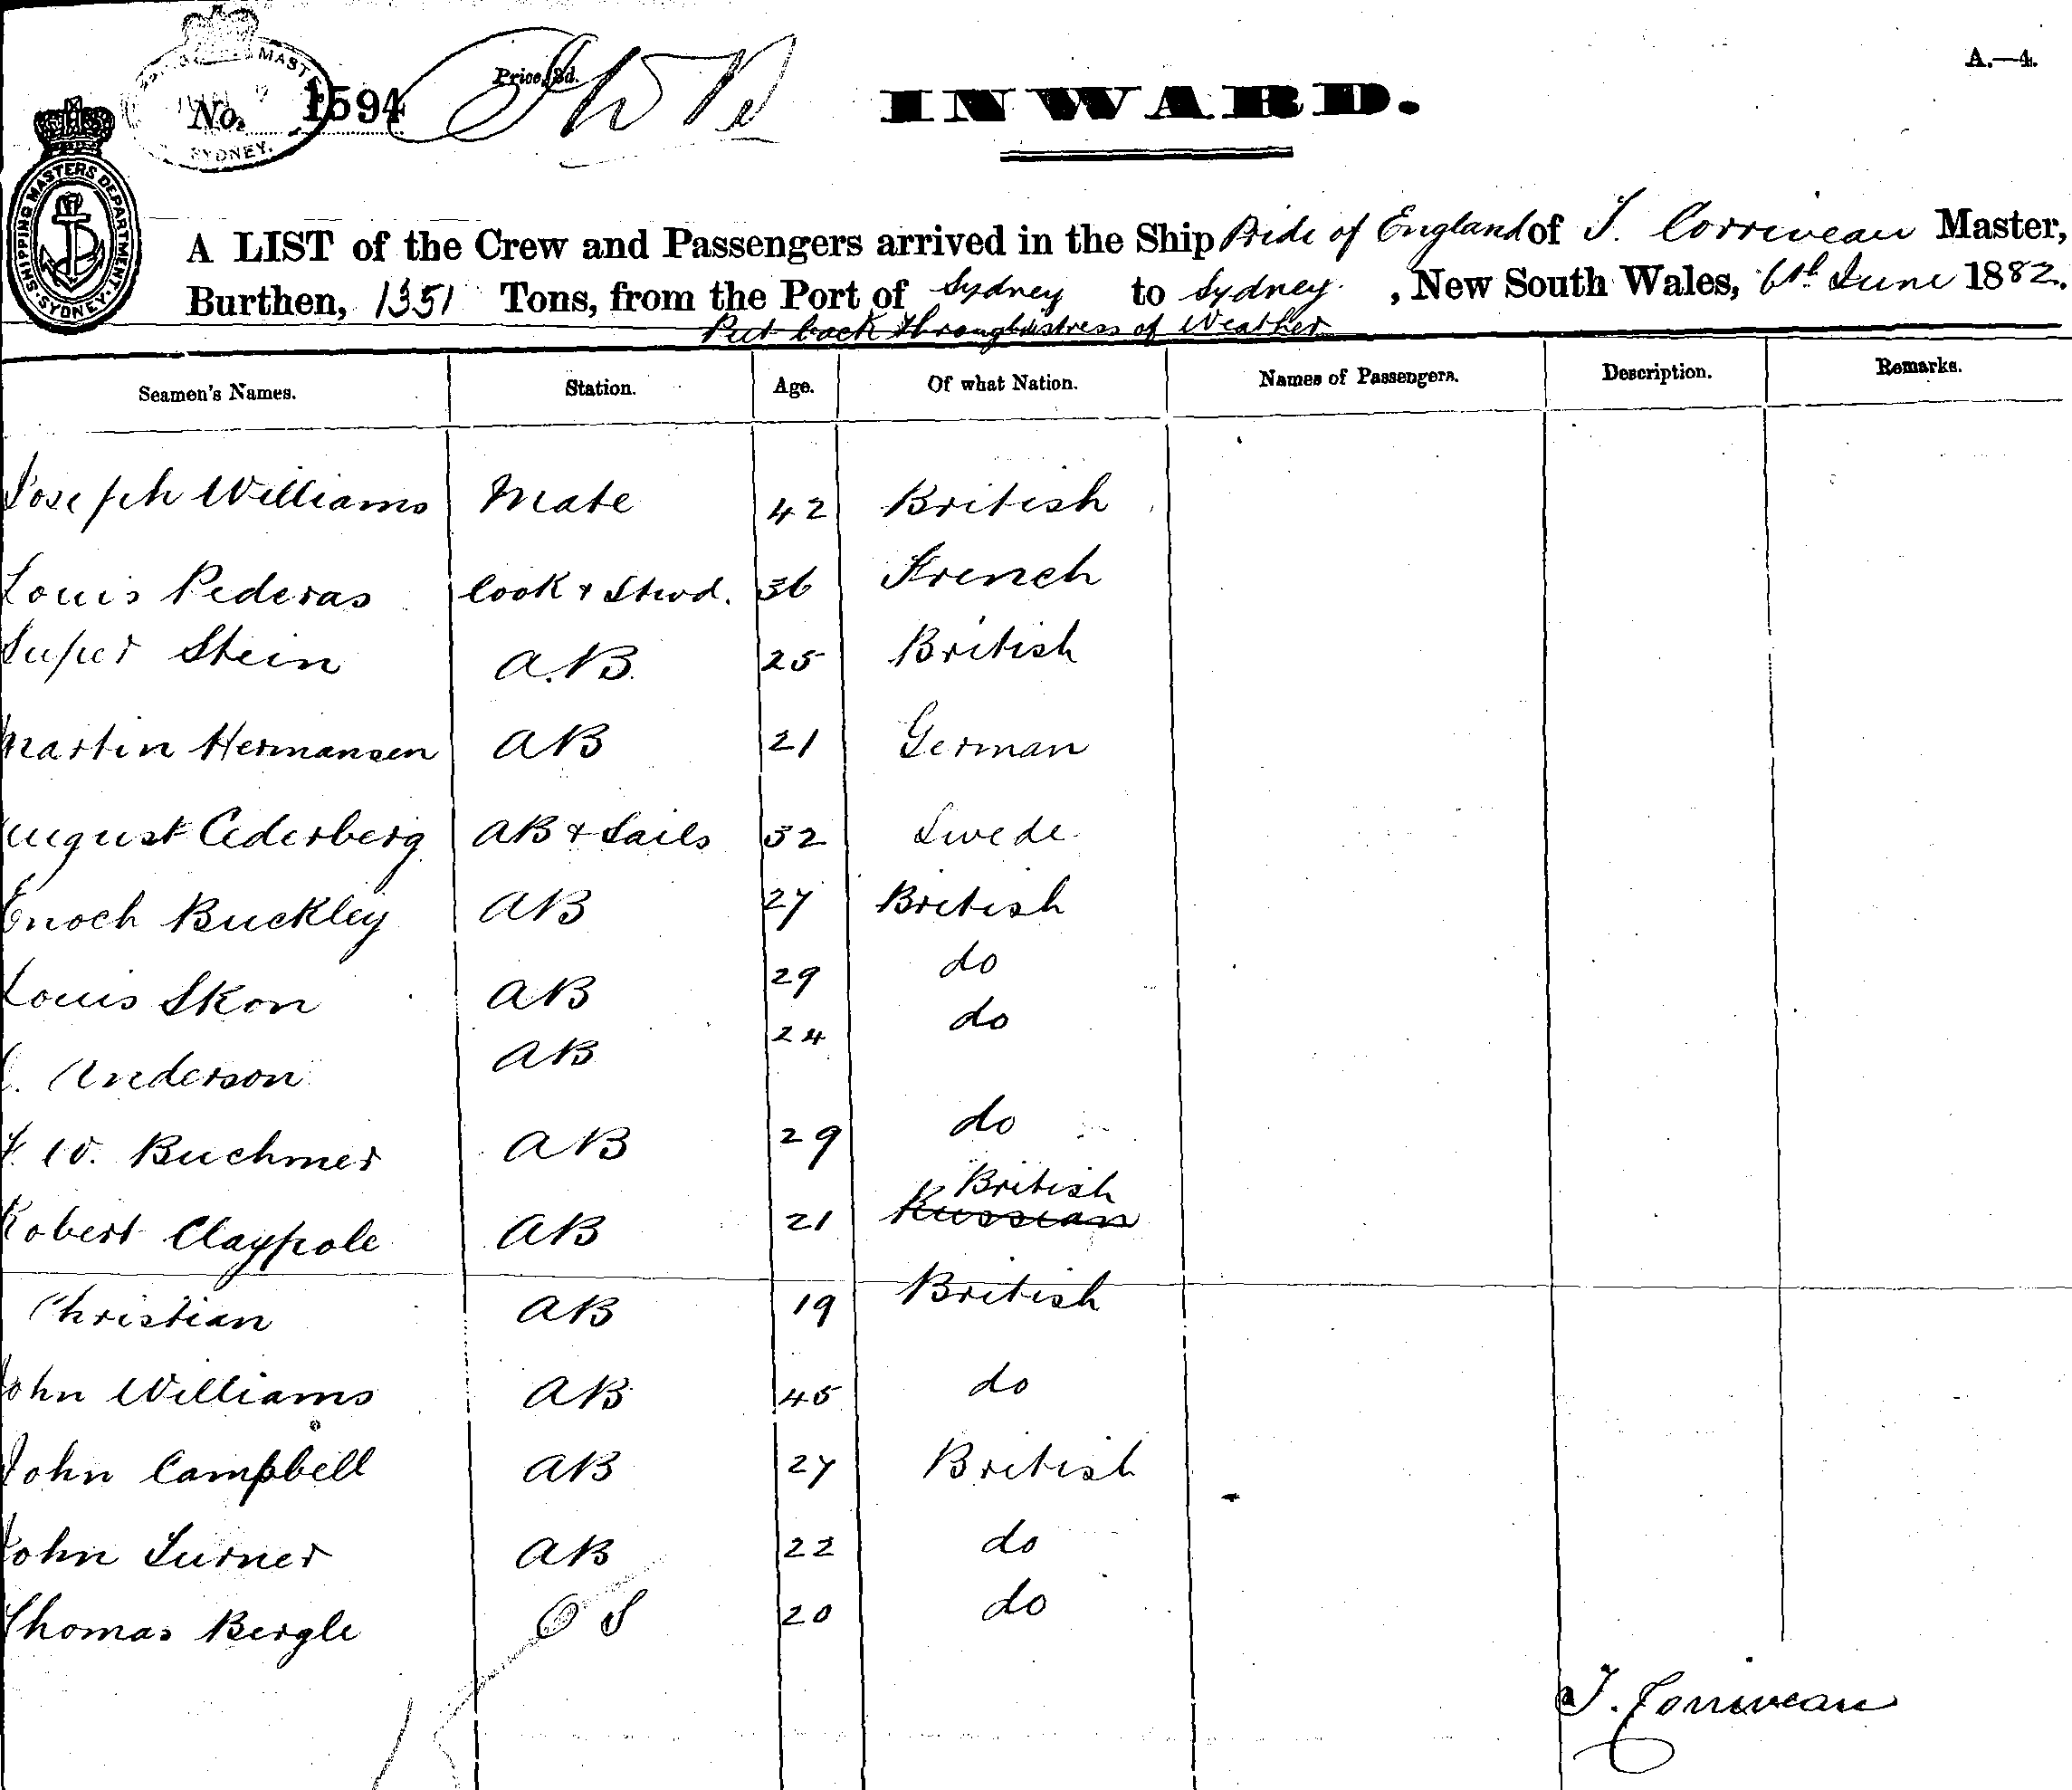 MAST
No. 1594
SYDNEY.
Price, 3d.
INWARD.
A.—4.
SHIPPING MASTERS DEPARTMENT. SYDNEY.
A LIST of the Crew and Passengers arrived in the Ship Pride of England of J. Corriveau Master,
Burthen, 1351 Tons, from the Port of Sydney to Sydney, New South Wales, 6th June 1882.
Put back through distress of Weather
Seamen's Names. Station. Age. Of what Nation. Names of Passengers. Description. Remarks.
Joseph Williams Mate 42 British
Louis Pederas Cook & Stwd. 36 French
Super Stein A.B. 25 British
Martin Hermansen AB 21 German
August Cederberg AB & Sails 32 Swede
Enoch Buckley AB 27 British
Louis Skon AB 29 do
Anderson AB 24 do
F. W. Buchmer AB 29 do
Robert Claypole AB 21 British Russian
Christian AB 19 British
John Williams AB 45 do
John Campbell AB 27 British
John Turner AB 22 do
Thomas Bergle O S 20 do
J. Corriveau